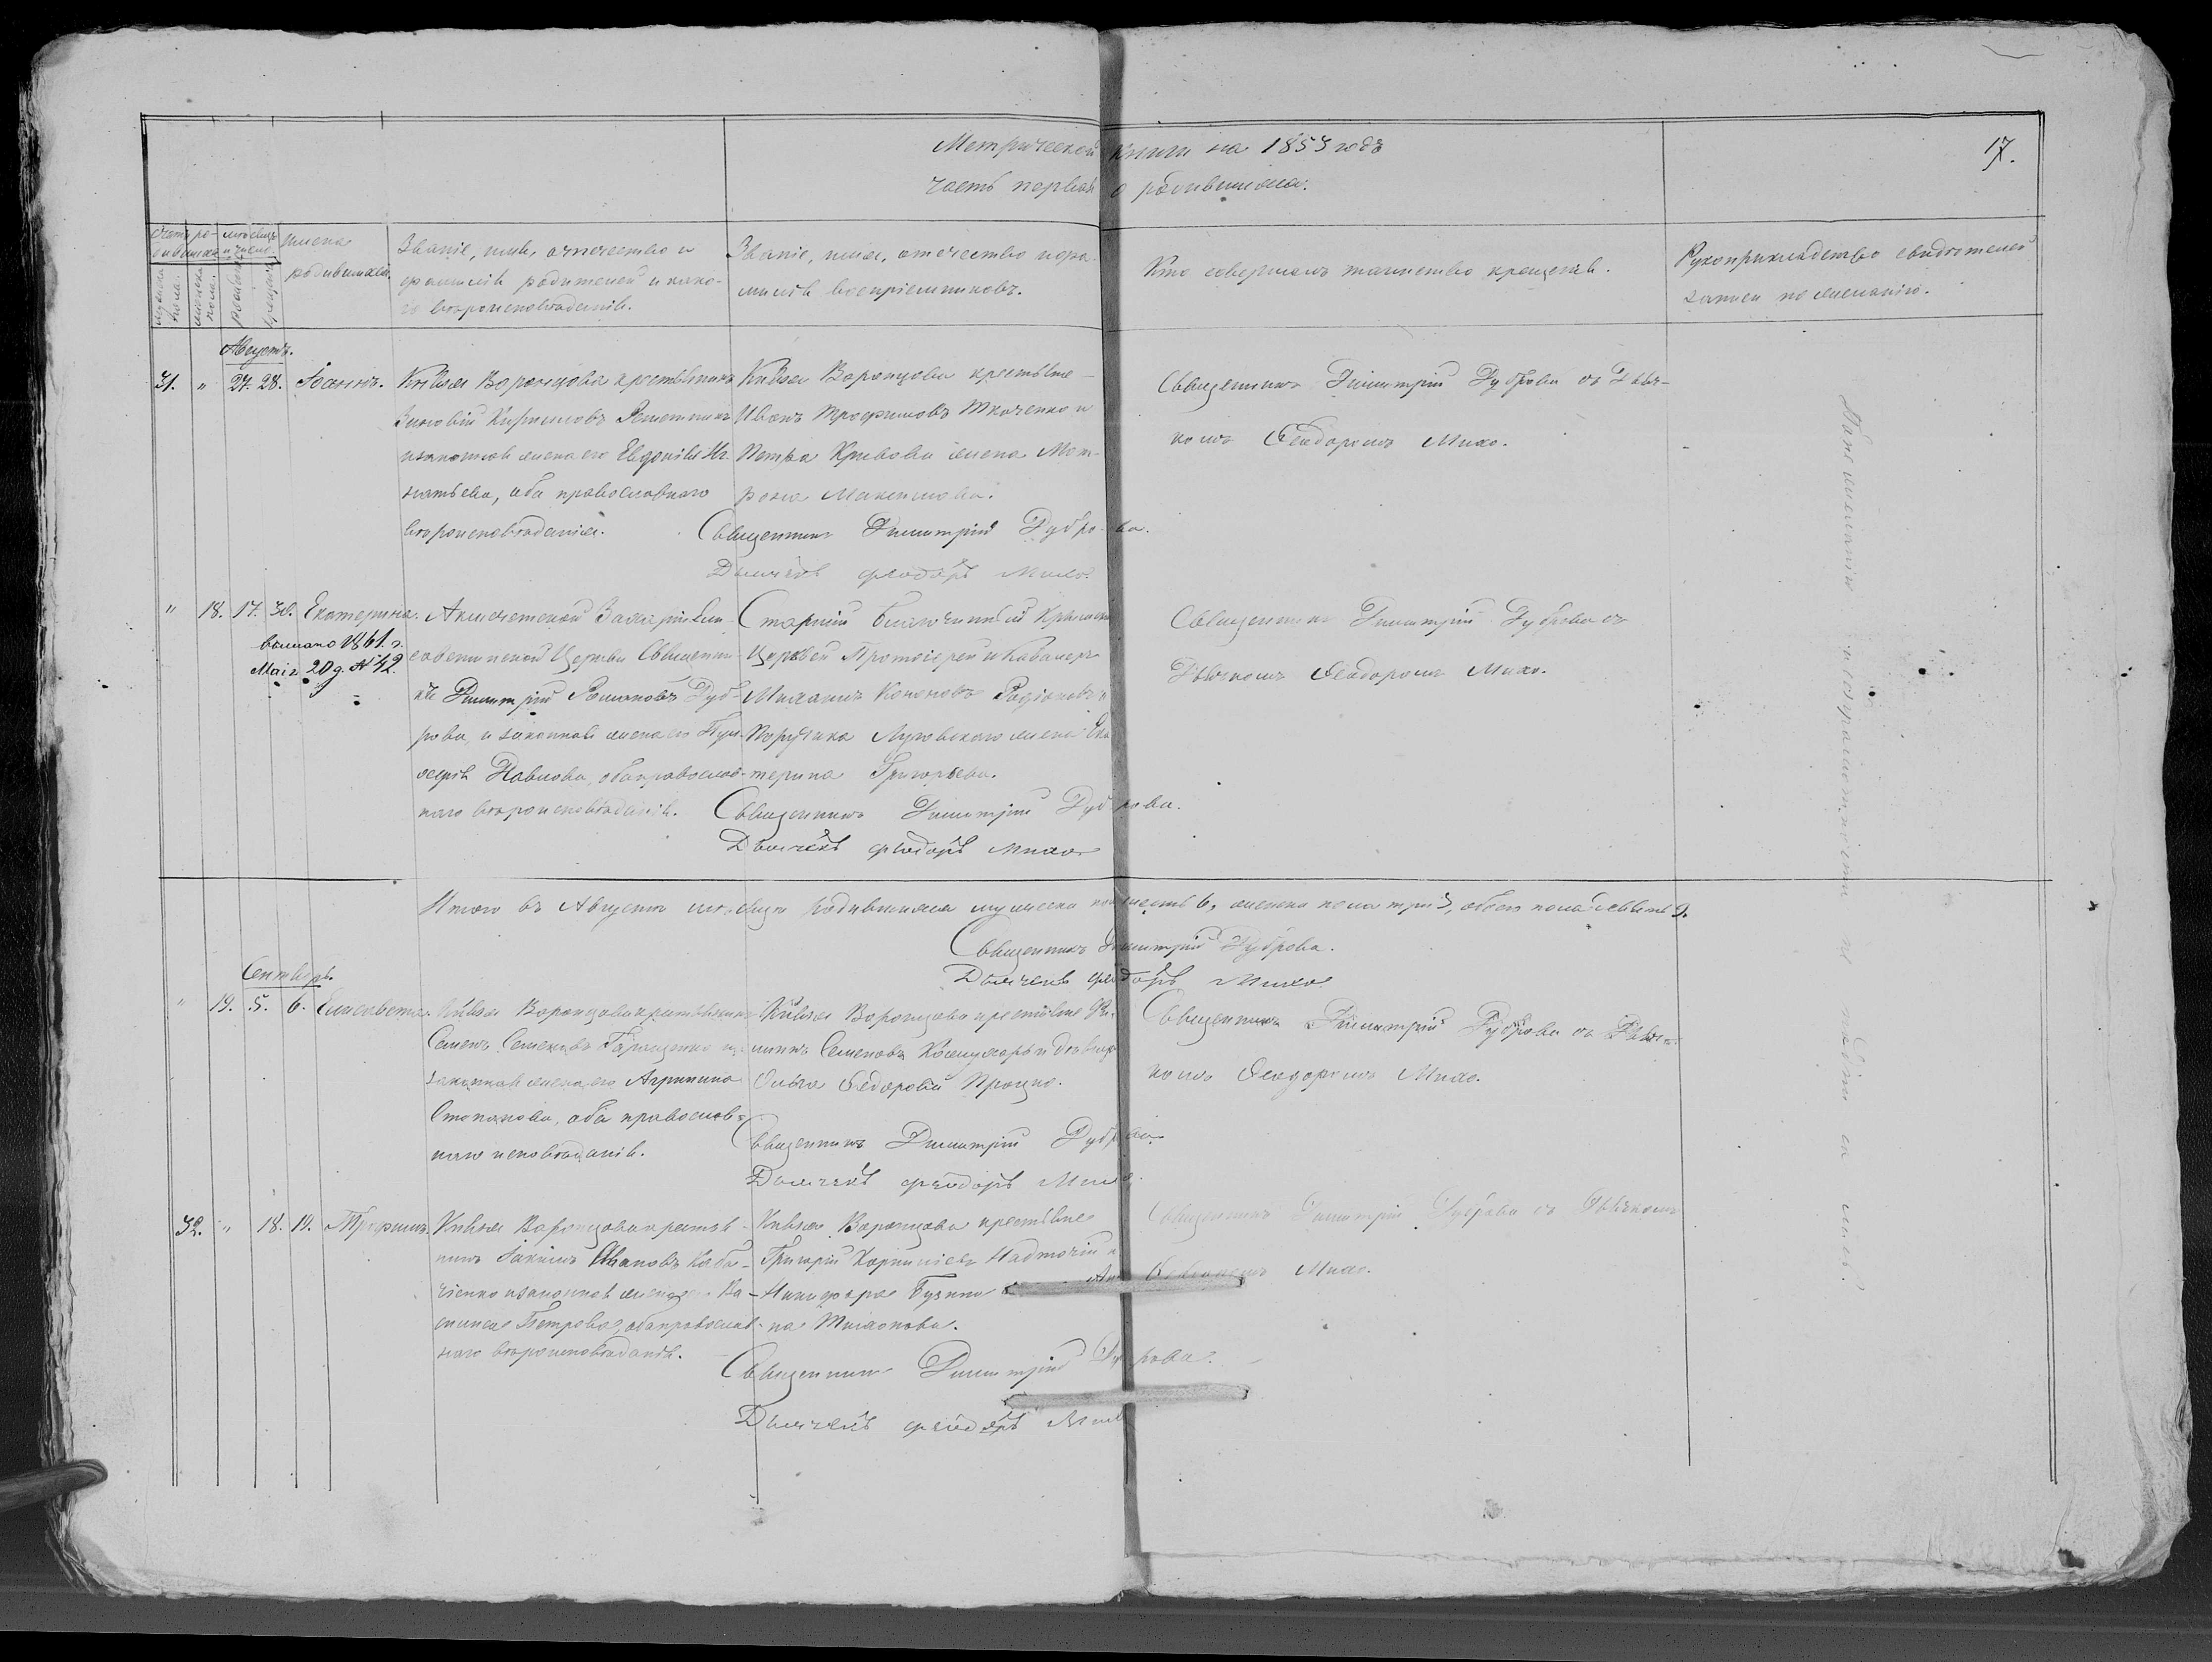 Метрической книги на 1853 годъ
17.
часть первая о родившихся.
Счетъ ро-
дившихся
мужеска пола.
женска пола.
мѣсяцъ
и число
рожденія
крещенія
Имена
родившихся.
Званіе, имя, отчество и
фамилія родителей и како-
го вѣроисповѣданія.
Званіе, имя, отчество и фа-
милія воспріемниковъ.
Кто совершалъ таинство крещенія.
Рукоприкладство свидѣтелей
записи по желанію.
Августъ.
31. " 27. 28. Іоаннъ.
Князя Воронцова крестьянинъ
Зиновій Кирилловъ
и законная жена его Евдокія Иг-
натьева, оба православнаго
вѣроисповѣданія.
Князя Воронцова крестьяне
Иванъ Трофимовъ Ткаченко и
Петра Кривова жена Мат-
рона Максимова.
Священникъ Димитрій Дуброва.
Дьячекъ Феодоръ Михо.
Священникъ Димитрій Дуброва съ Дьяч-
комъ Феодоромъ Михо.
" 18. 17. 30. Екатерина.
выдано 1861 г.
Маія 20 д. № 42.
Акмечетской Захаріи Ели-
саветинской Церкви Священни-
къ Димитрій Романовъ Дуб-
рова, и законная жена его
Павлова, оба православ-
наго вѣроисповѣданія.
Старшій благочинный Крымскихъ
Церквей Протоіерей и Кавалеръ
Михаилъ Кононовъ Родіоновъ и
Поручика Луговскаго жена Ека-
терина Григорьева.
Священникъ Димитрій Дуброва.
Дьячекъ Феодоръ Михо
Священникъ Димитрій Дуброва съ
Дьячкомъ Феодоромъ Михо.
Итого въ Августѣ мѣсяцѣ родившихся мужеска пола шесть 6, женска пола три 3, обоего пола девять 9.
Священникъ Димитрій Дуброва.
Дьячекъ Феодоръ Михо
Сентябрь.
" 19. 5. 6. Елисавета.
Князя Воронцова крестьянинъ
Семенъ Семеновъ и
законная жена его Агрипина
Степанова, оба православ-
наго исповѣданія.
Князя Воронцова крестьяне
Семеновъ и дѣвица
Ольга Федорова Процко.
Священникъ Димитрій Дуброва
Дьячекъ Феодоръ Михо.
Священникъ Димитрій Дуброва съ Дьяч-
комъ Феодоромъ Михо.
32. " 18. 19. Трофимъ.
Князя Воронцова крестья-
нинъ Іакимъ Ивановъ
и законная жена его Ва-
силиса Петрова, оба православ-
наго вѣроисповѣданія.
Князя Воронцова крестьяне
Григорій Корниліевъ Надточій и
Никифора
на Тихонова.
Священникъ Димитрій Дуброва.
Дьячекъ Феодоръ Михо
Священникъ Димитрій Дуброва съ Дьячкомъ
Феодоромъ Михо.